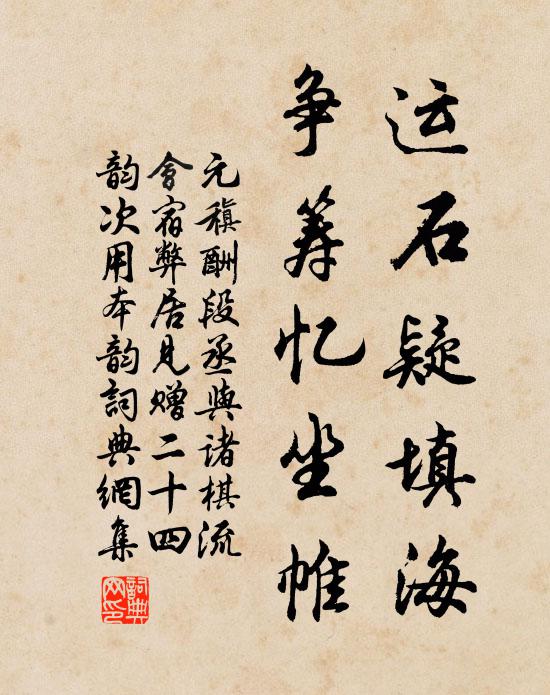 运石疑填海
争筹忆坐帷
元稹酬段丞与诸棋流
会宿弊居见赠二十四
韵次用本韵词典網集
詞典
网印